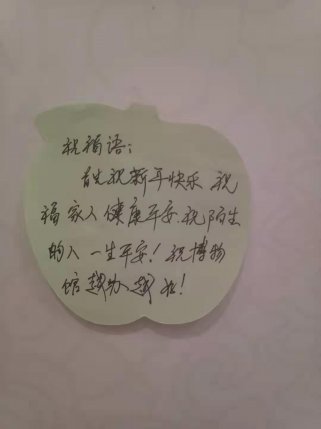 祝福语:
首先祝新年快乐 祝
福家人健康平安.祝陌生
的人一生平安!祝博物
馆越办越好!